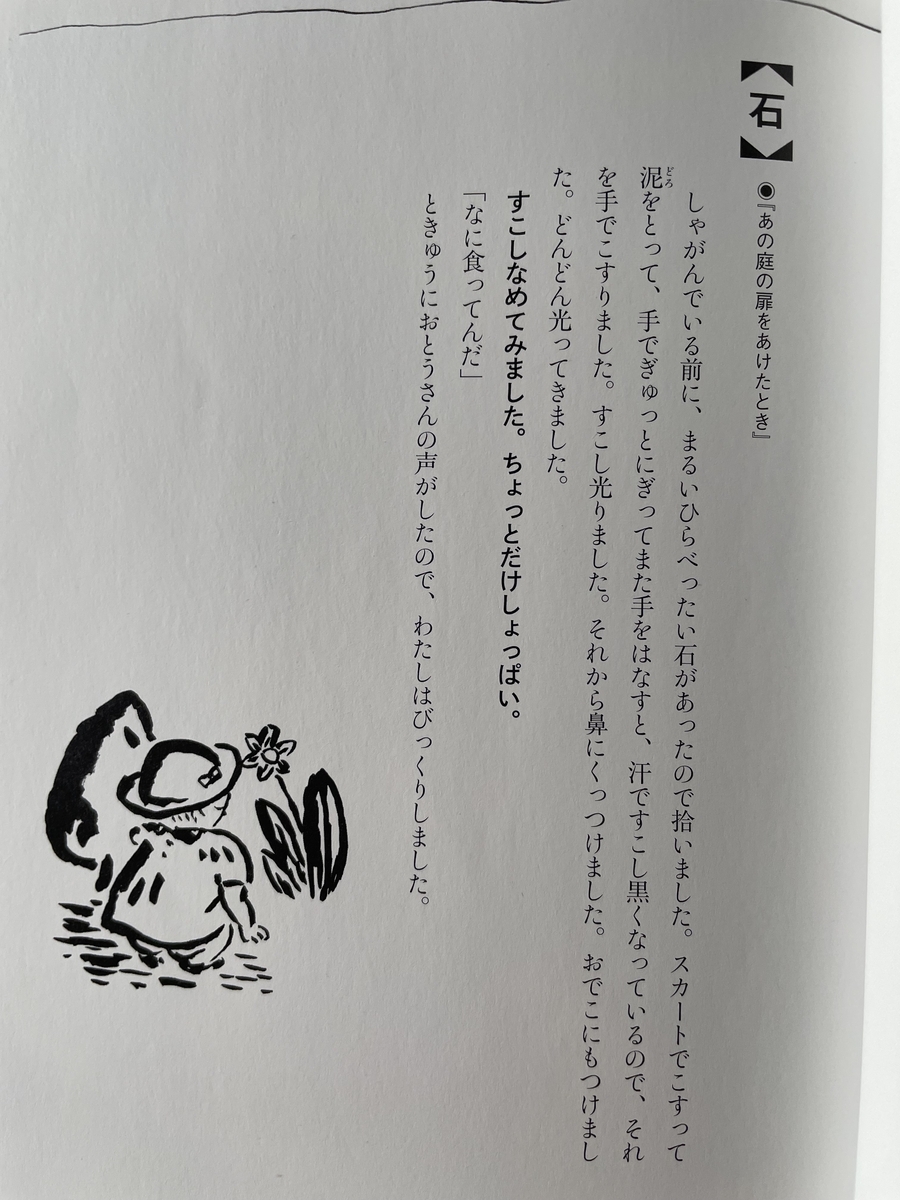 【石】
◉『あの庭の扉をあけたとき』
しゃがんでいる前に、まるいひらべったい石があったので拾いました。スカートでこすって
泥をとって、手でぎゅっとにぎってまた手をはなすと、汗ですこし黒くなっているので、それ
を手でこすりました。すこし光りました。それから鼻にくっつけました。おでこにもつけまし
た。どんどん光ってきました。
すこしなめてみました。ちょっとだけしょっぱい。
「なに食ってんだ」
ときゅうにおとうさんの声がしたので、わたしはびっくりしました。